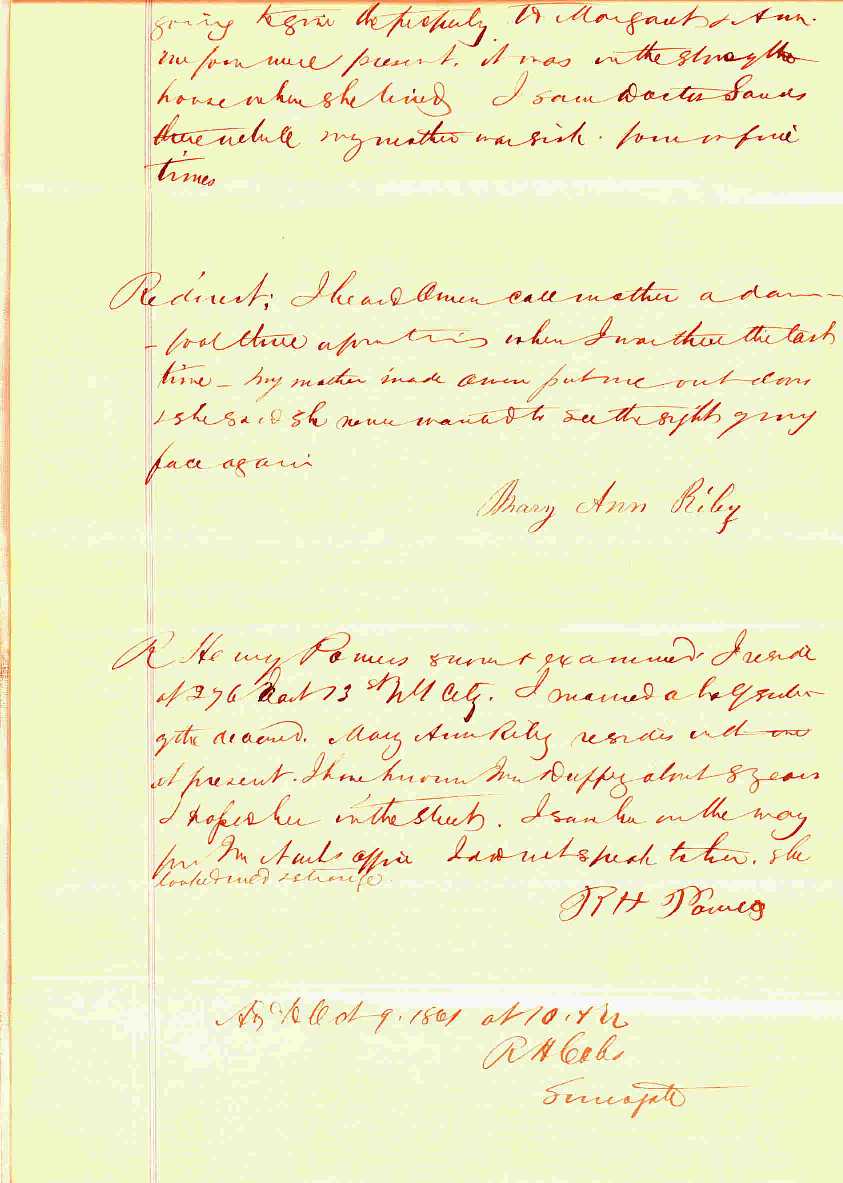 going to give the property to Margaret & Ann.
we four were present. it was in the
house when she lived I saw Doctor Sands
there while my mother was sick. four or five
times
Redirect; I heard Owen call mother a dam
- fool three or four times when I was there the last
time - my mother made Owen put me out doors
& she said she never wanted to see the sight of my
face again
Mary Ann Riley
R Henry Powers sworn & examined. I reside
at 276 East 73 st NY City. I married a half sister
of the deceased. Mary Ann Riley resides with me
at present. I have known Mrs Duffy about 8 years
I passed her in the street. I saw her on the way
from Mr office I did not speak to her. she
looked strange
R H Powers
Adjd to Oct 9. 1861 at 10. AM
R H
Surrogate